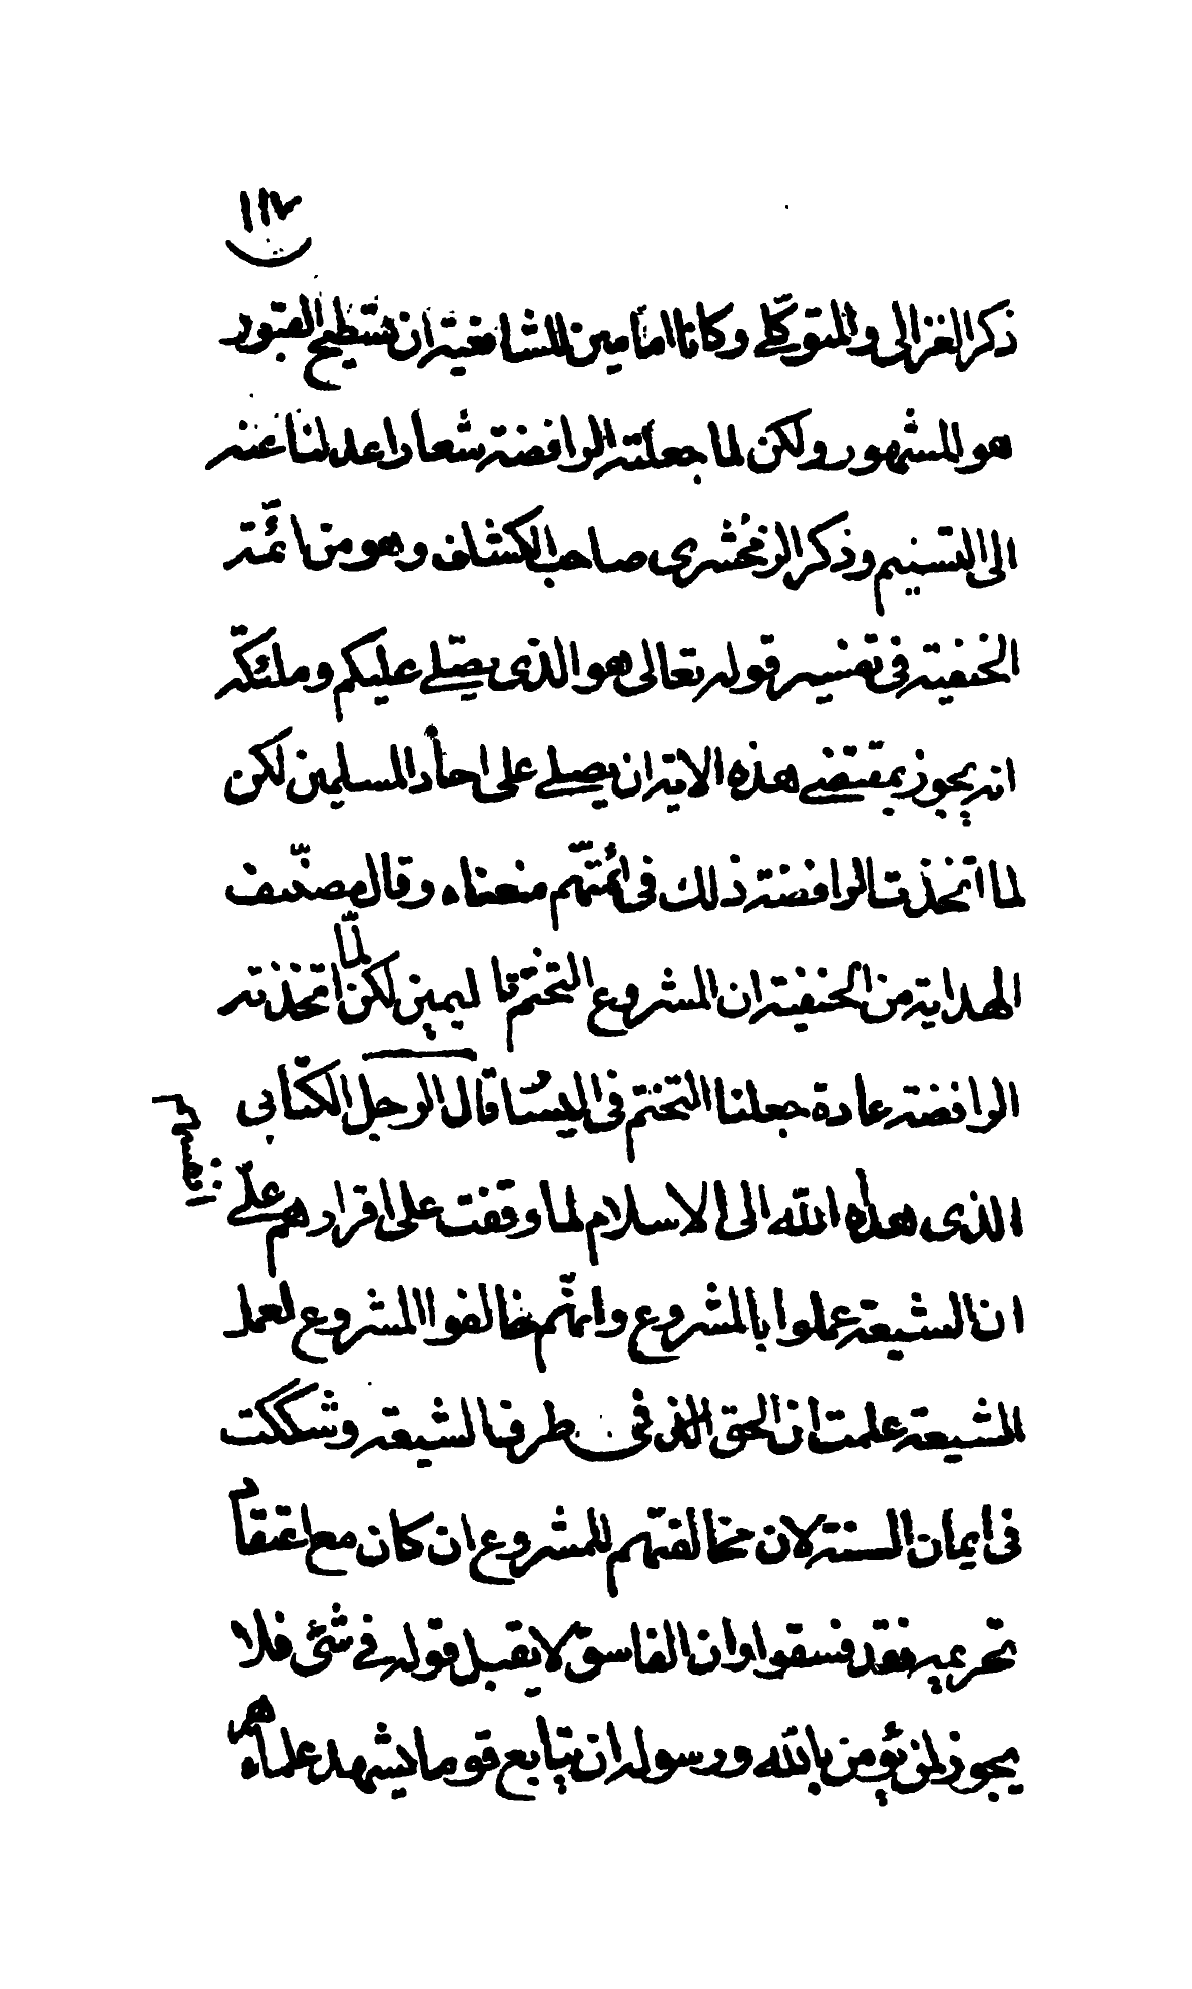 ١١٧
ذكر الغزالى والمتوكلى وكانا امامين للشافعية ان تسطيح القبور
هو المشهور ولكن لما جعلته الرافضة شعارا عدلنا عنه
الى التسنيم وذكر الزمخشرى صاحب الكشاف وهو من ائمّة
الحنفية فى تفسير قوله تعالى هو الذى يصلّى عليكم وملئكته
انه يجوز بمقتضى هذه الاية ان يصلى على احاد المسلمين لكن
لما اتخذت الرافضة ذلك فى ائمّتهم منعناه وقال مصنّف
الهداية من الحنفية ان المشروع التختم با ليمين لكن لمّا اتخذته
الرافضة عادة جعلنا التختم فى اليسا قال الرجل الكتابى
الذى هداه الله الى الاسلام لما وقفت على اقرارهم على
انفسهم
ان الشيعة عملوا بالمشروع وانهّم خالفوا المشروع لعمل
الشيعة علمت ان الحق الذى فى طرف الشيعة وشككت
فى ايمان السنة لان مخالفتهم للمشروع ان كان مع اعتقاد
تحريمه فقد فسقوا وان الفاسق لا يقبل قوله فى شئ فلا
يجوز لمن يؤمن بالله ورسوله ان يتابع قوما يشهد علماءهم